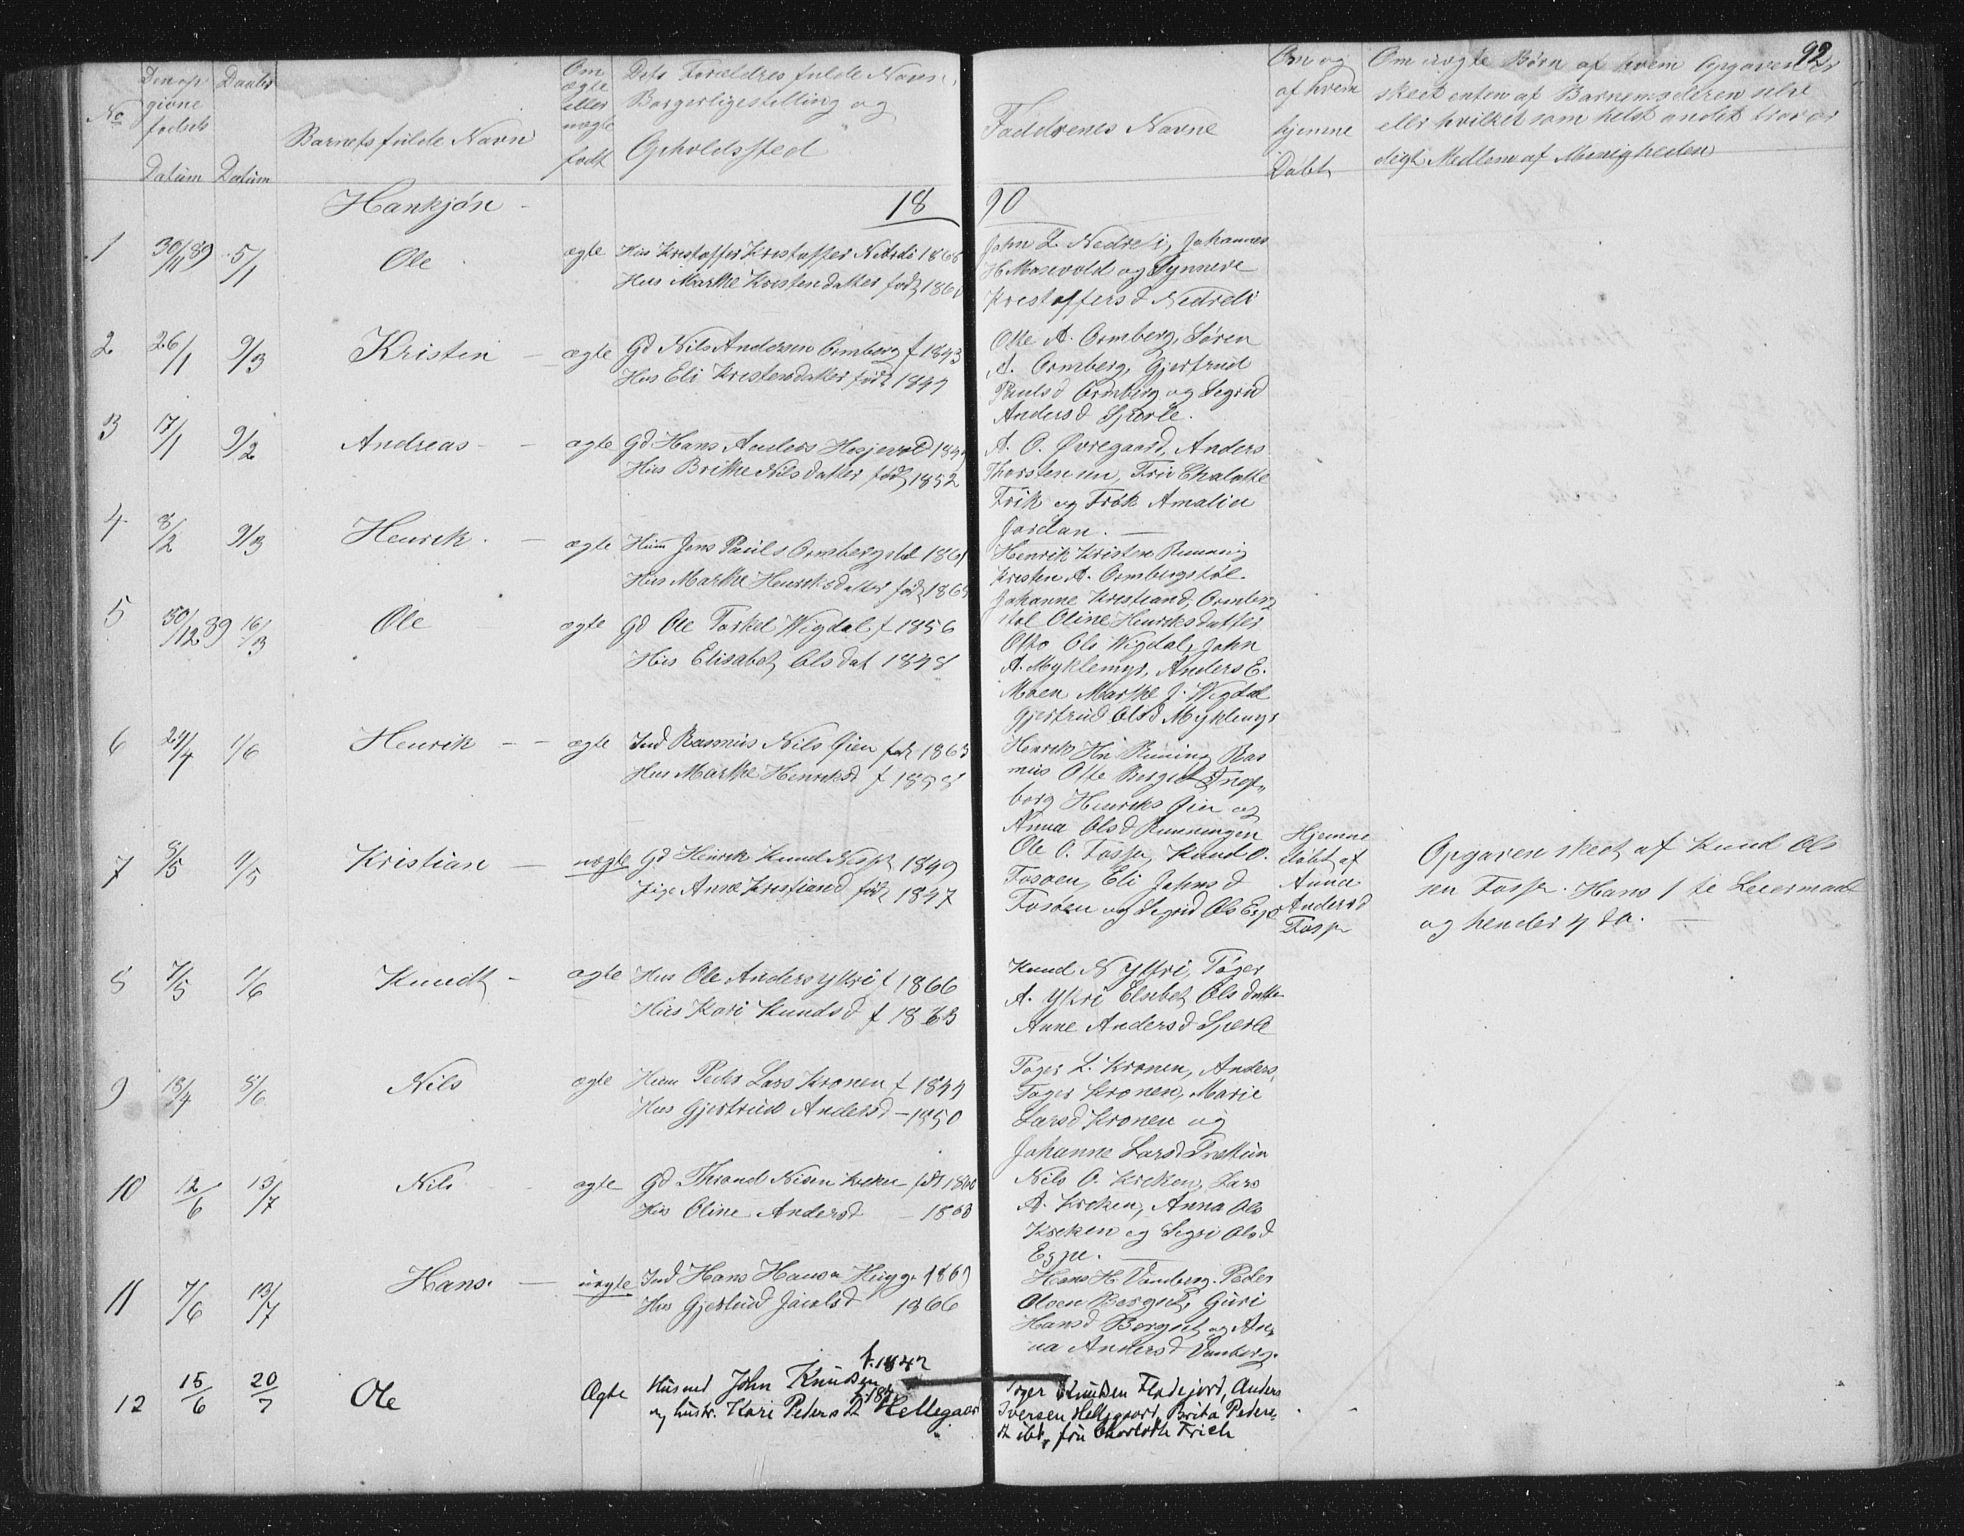 92
No
Den op
givne
fødsels
Datum
Daabs
Datum
Barnets fulde Navn
Om
ægte
eller
uægte
født
Dets Forældres fulde Navn,
Borgerligestilling og
Opholdssted
Faddrenes Navne
Om og
af hvem
hjemme
Døbt
Om uægte Børn af hvem Opgaven er
skeet enten af Barnemoderen selv
eller hvilket som helst andet trovær
digt Medlem af Menigheden
Hankjøn
18 90
1 30/11 89 5/1 Ole ægte
Hus Kristoffer Kristoffer Nedreli
Hus Marthe Kristendatter født
John L. Nedreli, Johannes
H. Moxevold og Synneve
Kristoffersd Nedreli
2 26/1 9/3 Kristen ægte
Gd Nils Andersen Ormberg f 1843
Hus Eli Kristensdatter født 1847
Ole A. Ormberg, Søren
A. Ormberg, Gjertrud
Paulsd Ormberg og Segrid
Andersd Sperle.
3 17/1 9/2 Andreas ægte
Gd Hans Anders Hesjevold
Hus Brithe Nilsdatter født 1852
A. O. Øvregaard, Anders
Thorstensen, Fru Chalotte
Frik og Frøk Amalia
Jordan.
4 8/2 9/3 Henrik ægte
Husm Jens Pauls Ormbergstøl
Hus Marthe Henriksdatter født
Henrik Kristen Running
Kristen A. Ormbergstøl
Johanne Kristiand, Ormberg
støl Oline Henriksdatter
5 30/12 89 16/3 Ole ægte
Gd Ole Torkel Wigdal f 1856
Hus Elisabet Olsdat 1848
Otto Ols Wigdal, John
A. Myklemyr, Anders E.
Moen Marthe J. Wigdal
Gjertrud Olsd Myklemyr
6 24/4 1/6 Henrik ægte
Ind Rasmus Nils Øien født 1865
Hus Marthe Henriksd f 1858
Henrik Hn Running Ras
mus Otte Berget Inge
borg Henriks Øien og
Anna Olsd Runningen
7 8/5 11/5 Kristian uægte
Gd Henrik Knud Nesse 1849
Pige Anne Kristiand født 1847
Ole O. Fosse, Knud O.
Fossen, Eli Johnsd
Fossen og Segrid Ols Espe
Hjemme
døbt af
Anna
Andersd
Fosse
Opgaven skeet af Knud Ols
sen Fosse. Hans 1ste Leiermaal
og hendes 4 do.
8 7/5 1/6 Knudt ægte
Hus Ole Anders Ytri f 1866
Hus Kari Knudsd f 1863
Knud N Ytri, Tøger
A. Ytri Elsebet Olsdatter
Anne Andersd Sperle
9 18/4 8/6 Nils ægte
Husm Peder Lars Kronen f 1844
Hus Gjertrud Andersd – 1850
Tøger L. Kronen, Anders
Tøger Kronen, Marie
Larsd Kronen og
Johanne Larsd Trættun
10 12/6 13/7 Nils ægte
Gd Thrond Nilsen Kreken født
Hus Oline Andersd – 1860
Nils O. Kreken, Lars
A. Kreken, Anna Ols
Kreken og Segri Olsd
Espe.
11 7/6 13/7 Hans uægte
Ind Hans Hansen Hugge 1869
Hus Gjertrud Jacobsd 1866
Hans H. Vanberg. Peder
Olsen Berget, Guri
Hansd Berget og An
na Andersd Vanberg.
12 15/6 20/7 Ole Ægte
Husmd John Knudsen f. 1842
og hustr. Kari Pedersdt Hellegaar
Tøger Knudsen Flahejord, Anders
Iversen Hellegaard, Brita Peders
dt ibd, fru Charlotte Frich